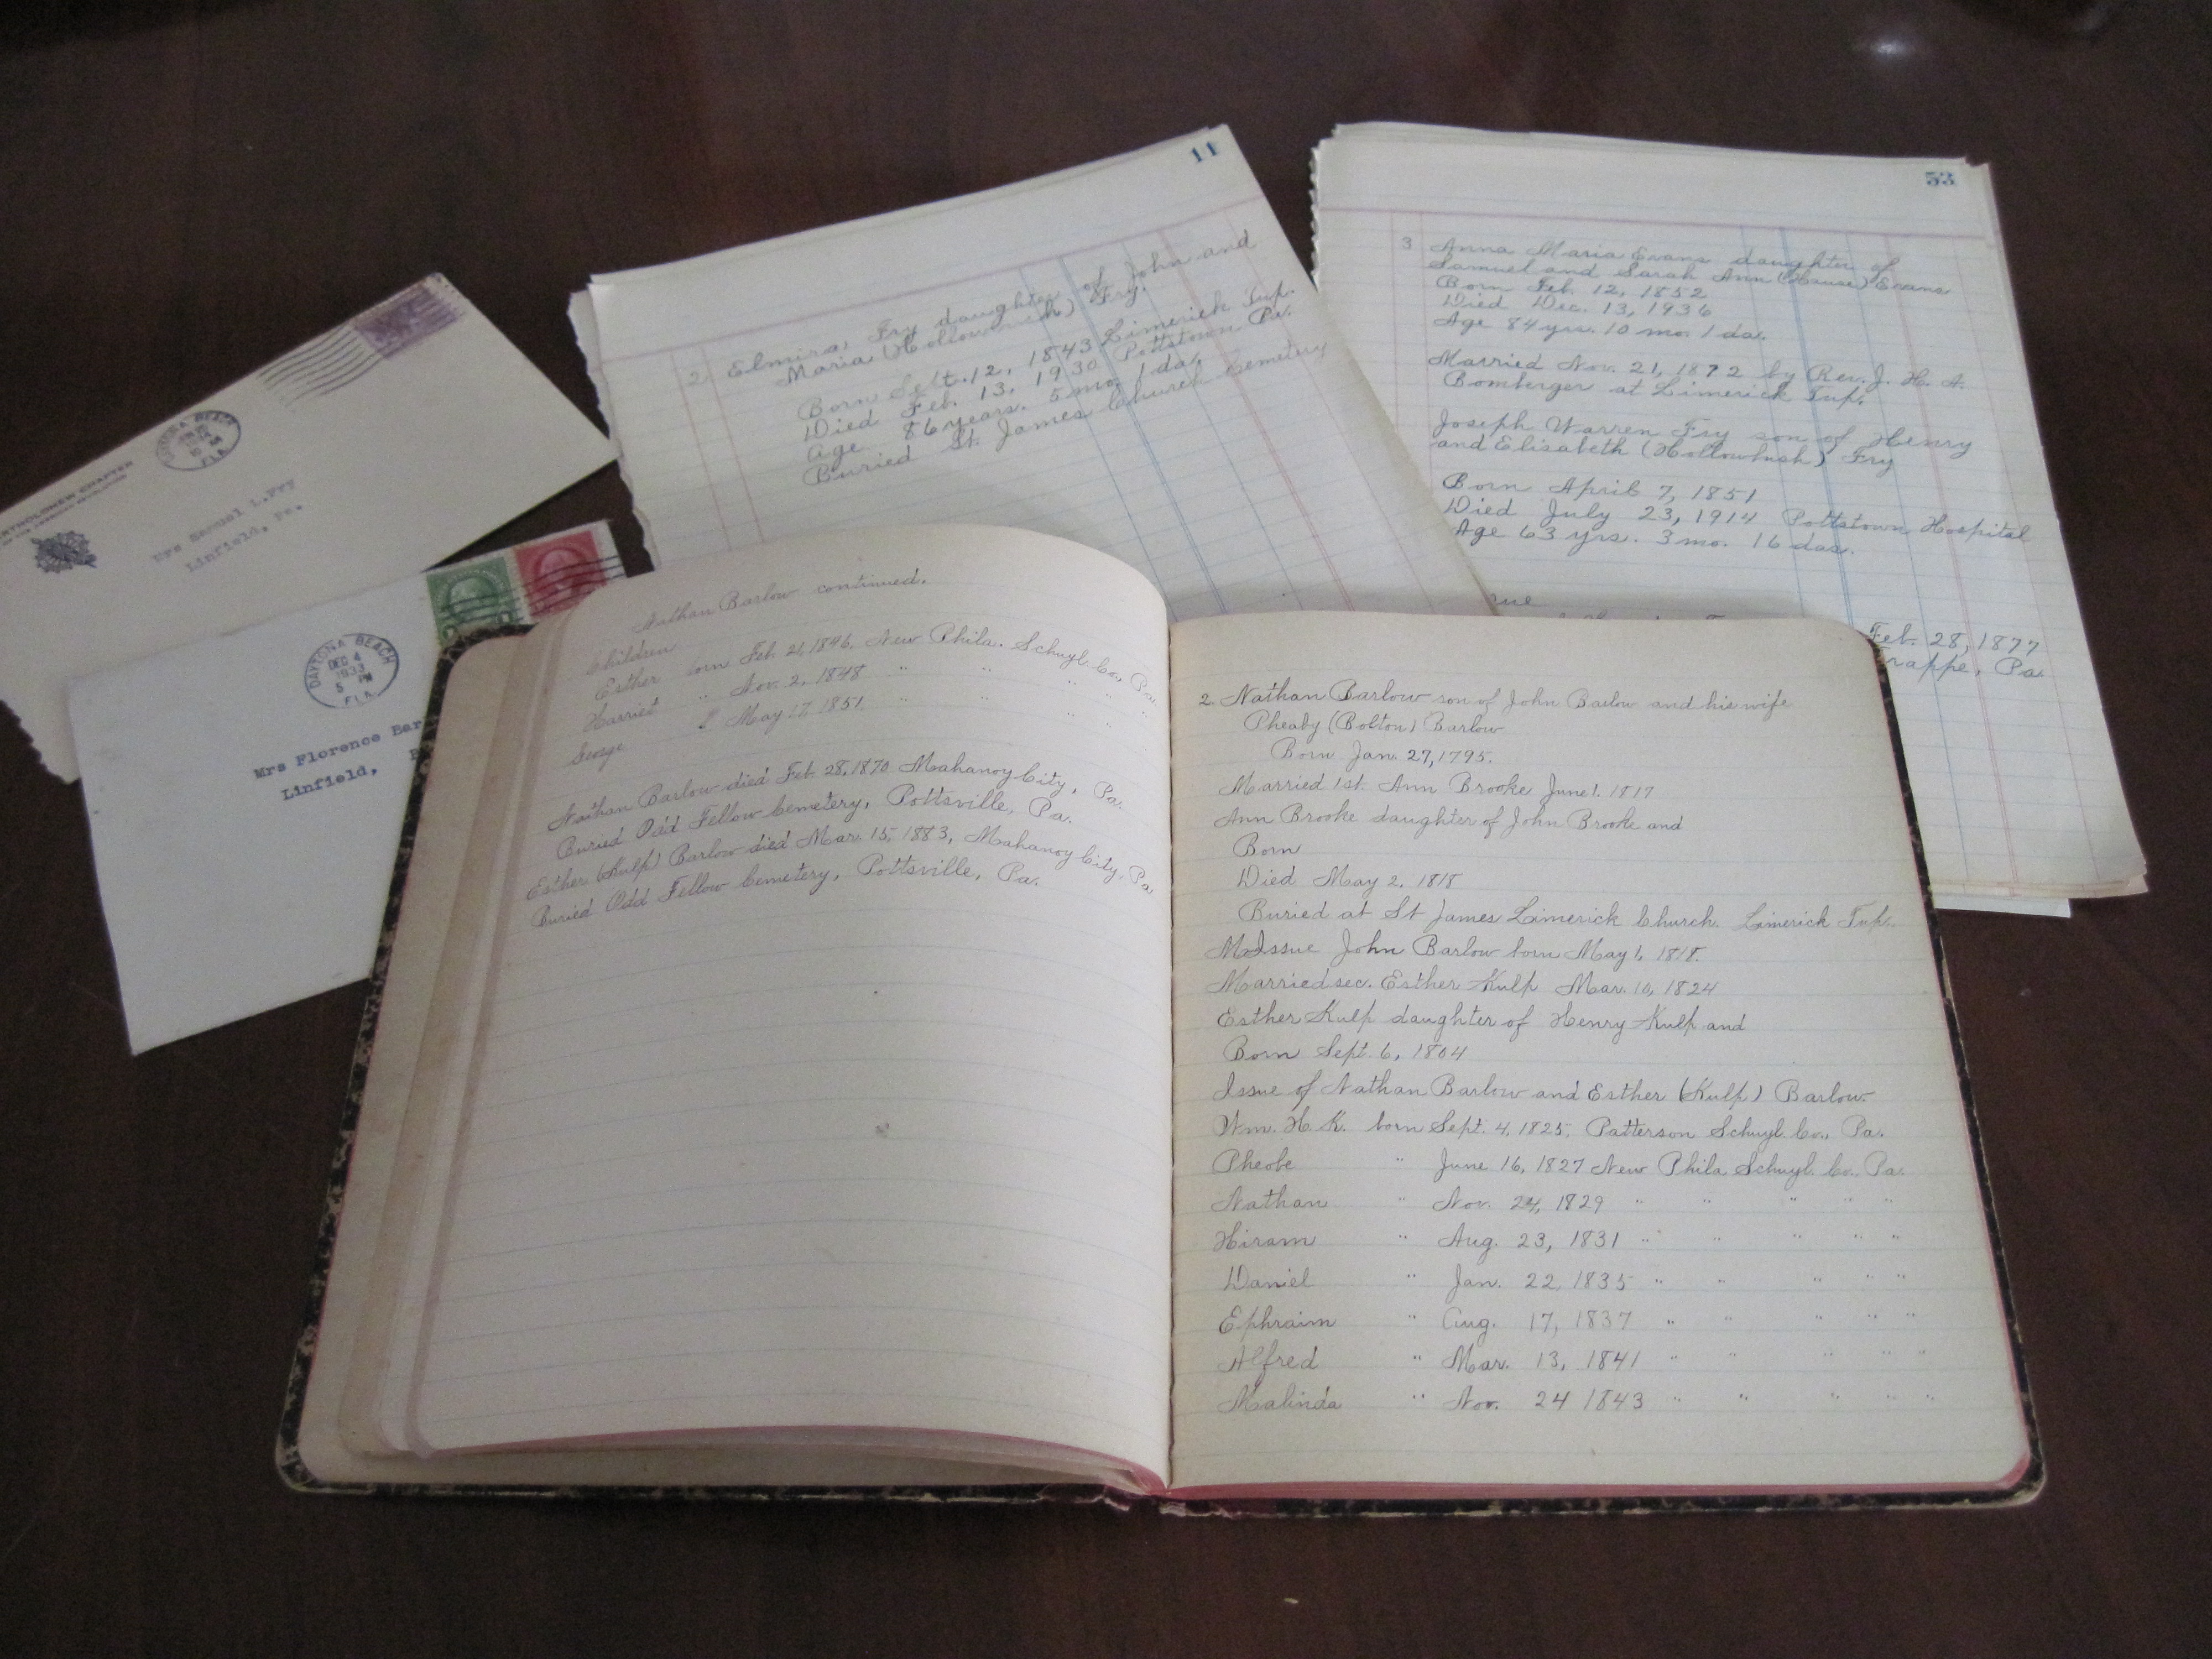 BARTHOLOMEW CHAPTER
FLA.
Mrs Samuel L. Fry
Linfield, Pa.
DAYTONA BEACH
DEC 4
5 PM
1933
FLA.
Mrs Florence Bar
Linfield,
11
2 Elmira Fry daughter of John and
Maria (Hollowbush) Fry.
Born Sept. 12, 1843 Limerick Tup.
Died Feb. 13, 1930 Pottstown Pa.
Age 86 years. 5 mo. 1 da.
Buried St. James Church Cemetery
53
3 Anna Maria Evans daughter of
Samuel and Sarah Ann (Hause) Evans
Born Feb. 12, 1852
Died Dec. 13, 1936
Age 84 yrs. 10 mo. 1 da.
Married Nov. 21, 1872 by Rev. J. H. A.
Bomberger at Limerick Tup.
Joseph Warren Fry son of Henry
and Elisabeth (Hollowbush) Fry
Born April 7, 1851
Died July 23, 1914 Pottstown Hospital
Age 63 yrs. 3 mo. 16 das.
Feb. 28, 1877
rappe, Pa.
Nathan Barlow continued.
Children
Esther orn Feb. 21, 1846, New Phila. Schuyl. Co., Pa.
Harriet " Nov. 2, 1848 " " " "
George " May 17, 1851, " " " "
Nathan Barlow died Feb. 28, 1870 Mahanoy City, Pa.
Buried Odd Fellow Cemetery, Pottsville, Pa.
Esther (Kulp) Barlow died Mar. 15, 1883, Mahanoy City, Pa.
Buried Odd Fellow Cemetery, Pottsville, Pa.
2. Nathan Barlow son of John Barlow and his wife
Pheaby (Bolton) Barlow
Born Jan. 27, 1795.
Married 1st. Ann Brooke June 1. 1817
Ann Brooke daughter of John Brooke and
Born
Died May 2, 1818
Buried at St James Limerick Church. Limerick Tup.
Issue John Barlow born May 1, 1818.
Married sec. Esther Kulp Mar. 10, 1824
Esther Kulp daughter of Henry Kulp and
Born Sept. 6, 1804
Issue of Nathan Barlow and Esther (Kulp) Barlow.
Wm. H. K. born Sept. 4, 1825, Patterson Schuyl. Co., Pa.
Pheobe " June 16, 1827 New Phila Schuyl. Co. Pa.
Nathan " Nov. 24, 1829 " " " " "
Hiram " Aug. 23, 1831 " " " " "
Daniel " Jan. 22, 1835 " " " " "
Ephraim " Aug. 17, 1837 " " " " "
Alfred " Mar. 13, 1841 " " " " "
Malinda " Nov. 24 1843 " " " " "